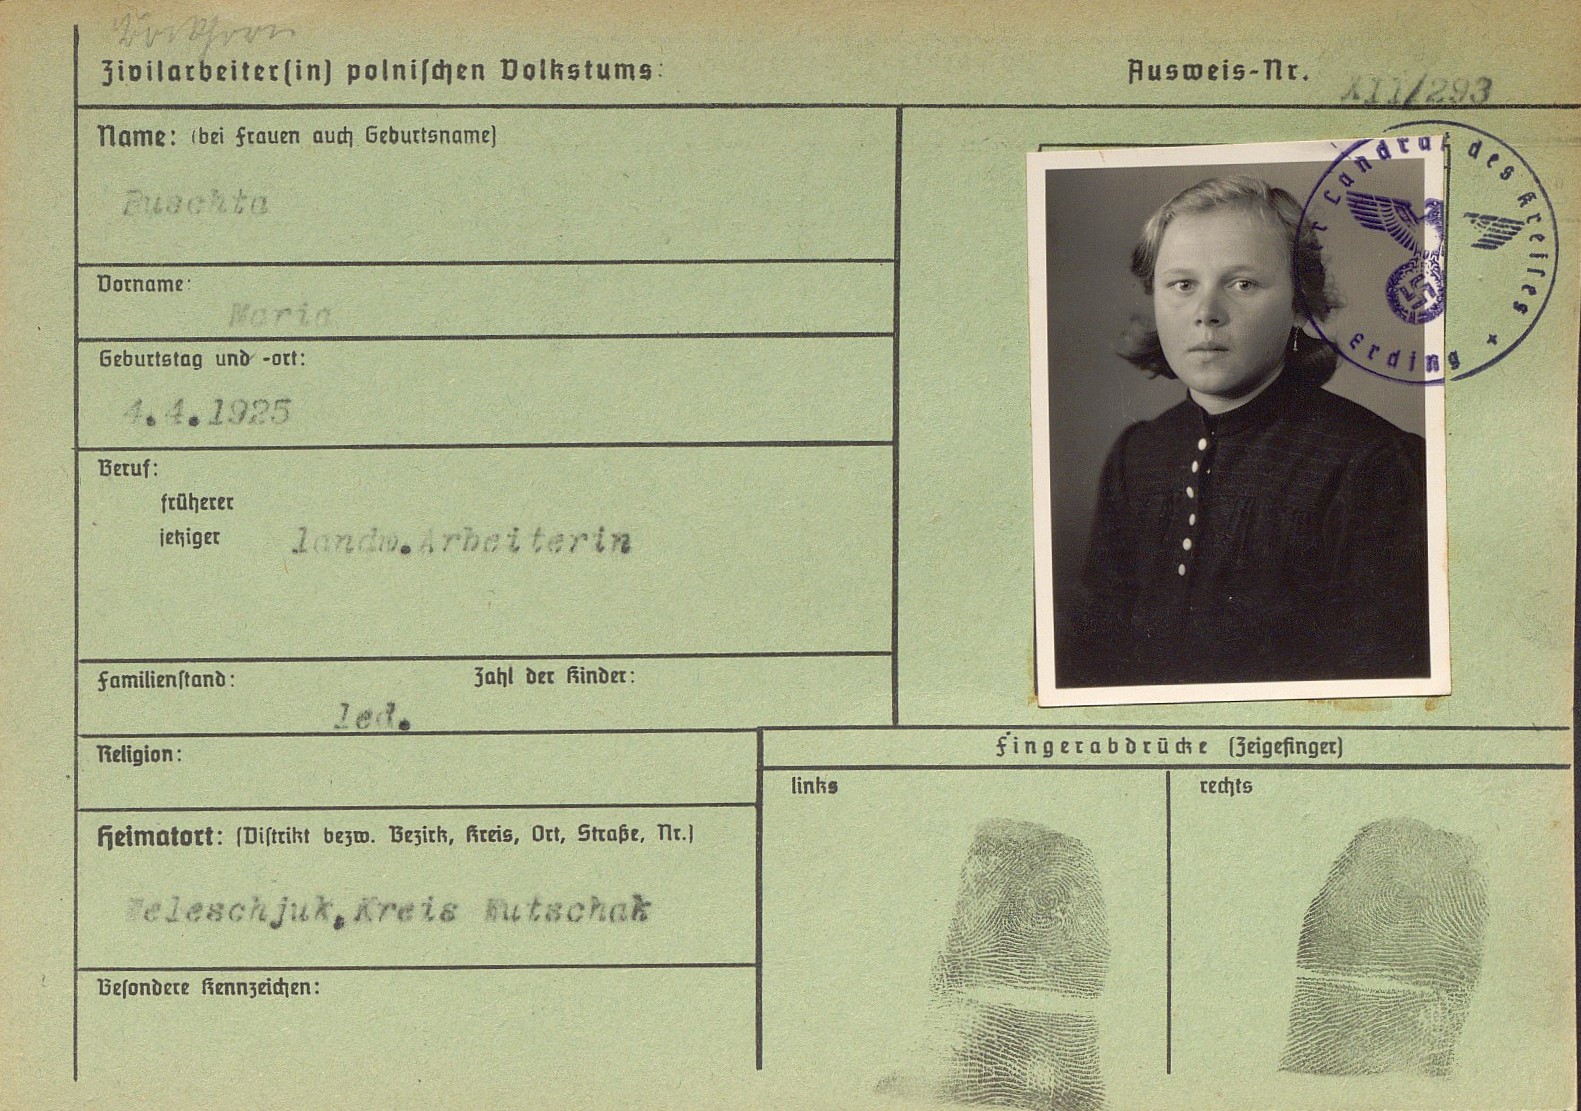 Zivilarbeiter(in) polnischen Volkstums:
Ausweis-Nr.
XII/293
Name: (bei Frauen auch Geburtsname)
Puschta
Vorname:
Maria
Geburtstag und -ort:
4.4.1925
Beruf:
früherer
jetziger landw.Arbeiterin
Familienstand: Zahl der Kinder:
led.
Religion:
Heimatort: (Distrikt bezw. Bezirk, Kreis, Ort, Straße, Nr.)
Meleschjuk,Kreis Mutschak
Besondere Kennzeichen:
Der Landrat des Kreises
Erding
Fingerabdrücke (Zeigefinger)
links rechts